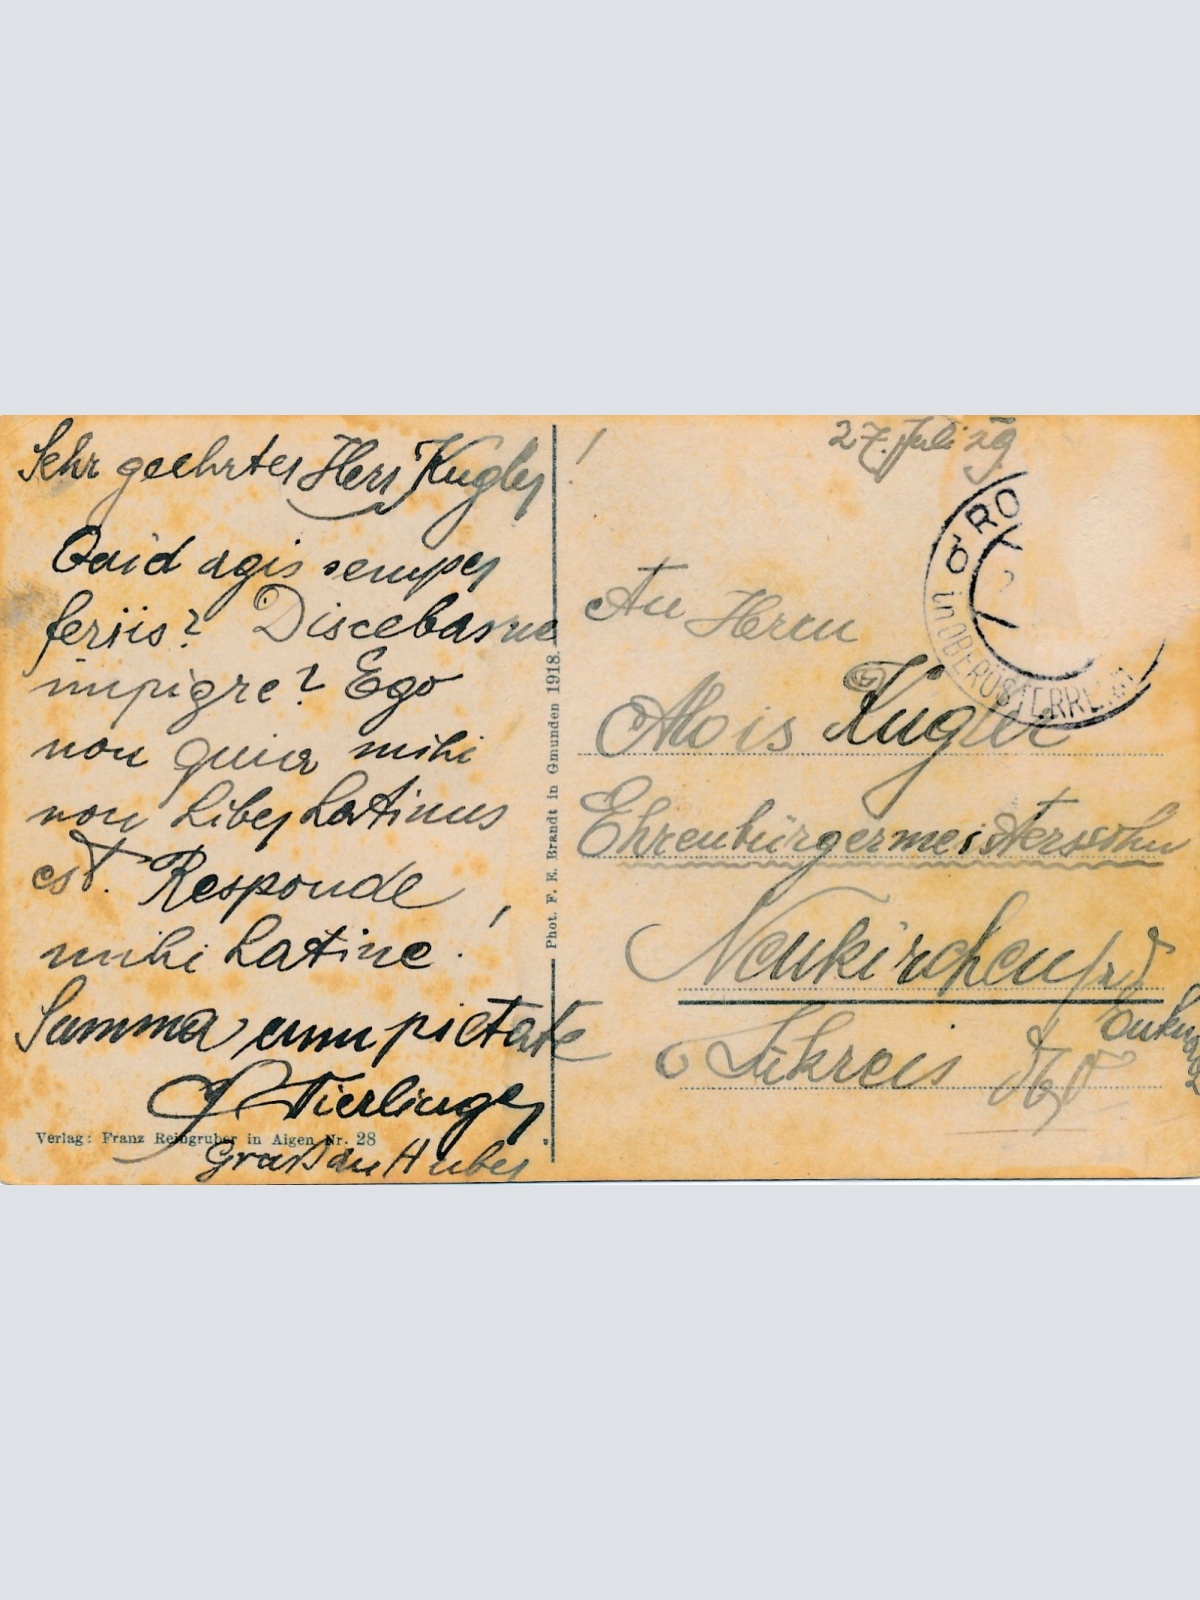 Sehr geehrter Herr Kugler!
Quid agis semper
feriis? Discebasne
impigre? Ego
non quia mihi
non Liber Latinus
est. Responde
mihi Latine!
Summa cum pietate
Tierlinger
Verlag: Franz Reingruber in Aigen Nr. 28
Huber
Phot. F. E. Brandt in Gmunden 1918.
27. Juli 29
RO
in OBERÖSTERREICH
An Herrn
Alois Kugler
Ehrenbürgermeisterssohn
Neukirchen